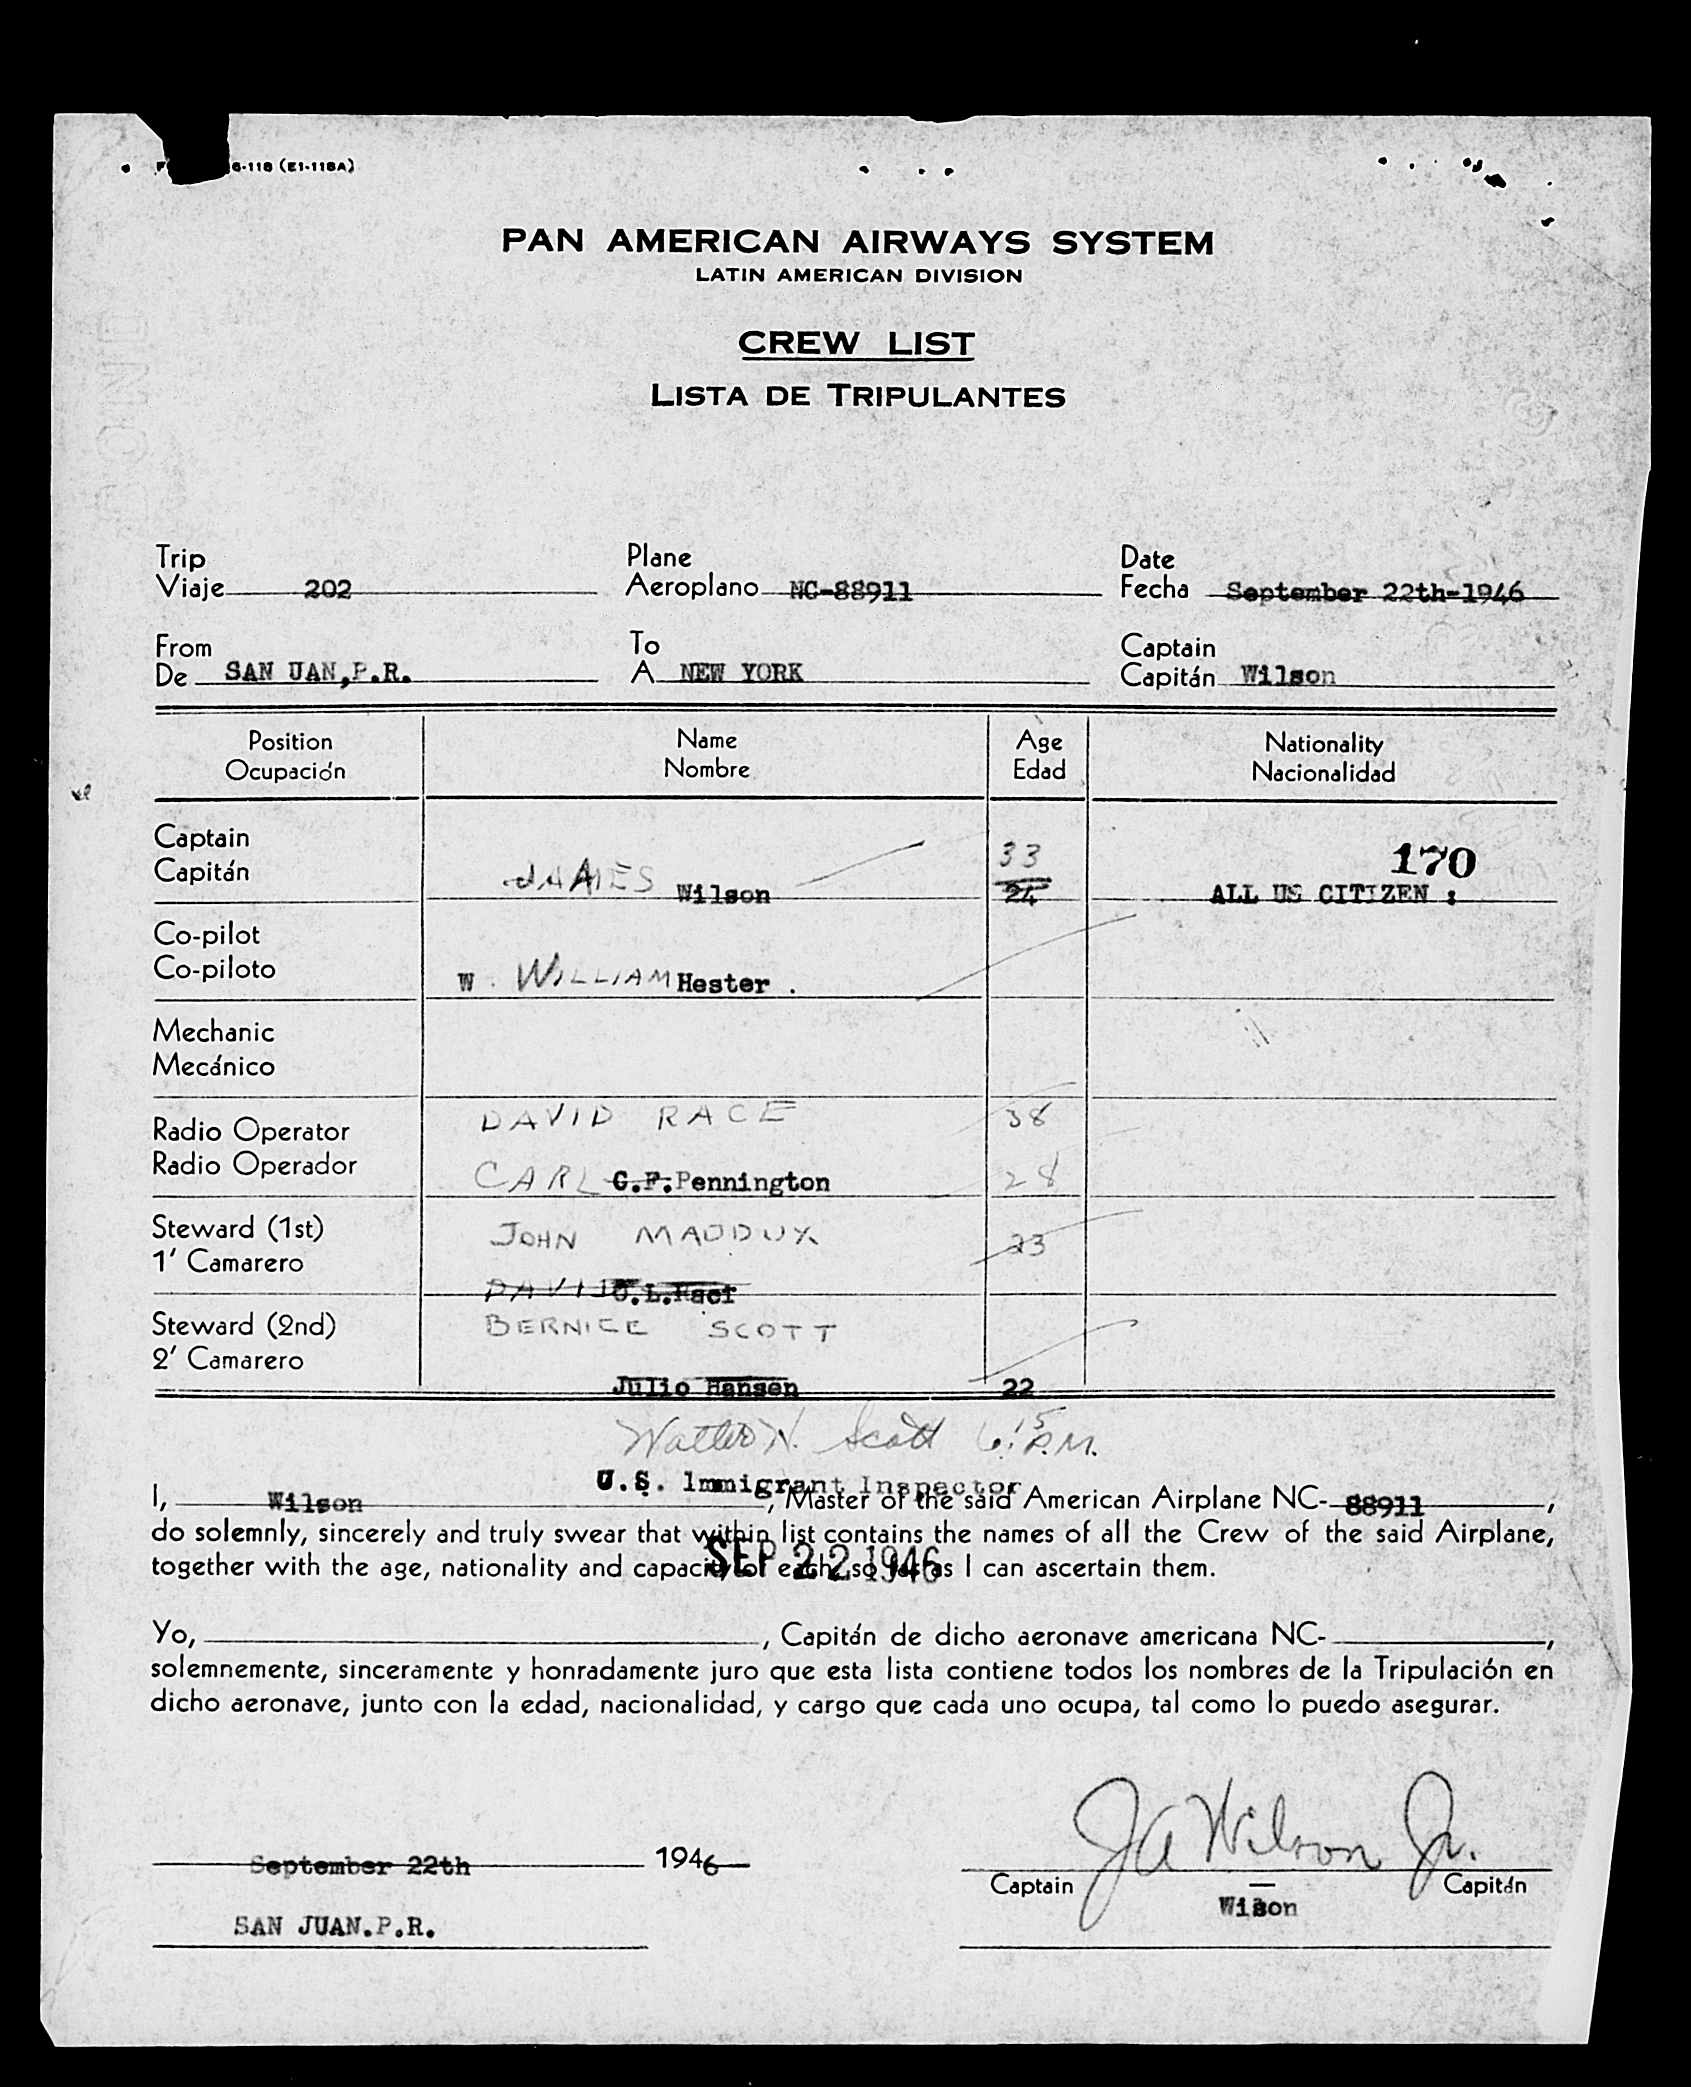 6-118 (E1-118A)
PAN AMERICAN AIRWAYS SYSTEM
LATIN AMERICAN DIVISION
CREW LIST
LISTA DE TRIPULANTES
Trip
Viaje 202
Plane
Aeroplano NC-88911
Date
Fecha September 22th-1946
From
De SAN UAN,P.R.
To
A NEW YORK
Captain
Capitán Wilson
Position
Ocupación
Name
Nombre
Age
Edad
Nationality
Nacionalidad
Captain
Capitán
JAMES Wilson
33
24
170
ALL US CITIZEN :
Co-pilot
Co-piloto
W. WILLIAM Hester .
Mechanic
Mecánico
Radio Operator
Radio Operador
DAVID RACE 38
CARL C.F.Pennington 28
Steward (1st)
1' Camarero
JOHN MADDUX 23
DAVID
Steward (2nd)
2' Camarero
BERNICE SCOTT
Julio Hansen 22
Walter N. Scott 6:15 P.M.
U.S. Immigrant Inspector
I, Wilson, Master of the said American Airplane NC-88911,
do solemnly, sincerely and truly swear that within list contains the names of all the Crew of the said Airplane,
together with the age, nationality and capacity of each so far as I can ascertain them.
SEP 22 1946
Yo, , Capitán de dicho aeronave americana NC- ,
solemnemente, sinceramente y honradamente juro que esta lista contiene todos los nombres de la Tripulación en
dicho aeronave, junto con la edad, nacionalidad, y cargo que cada uno ocupa, tal como lo puedo asegurar.
September 22th 1946
SAN JUAN.P.R.
JA Wilson Jr.
Captain Capitán
Wison